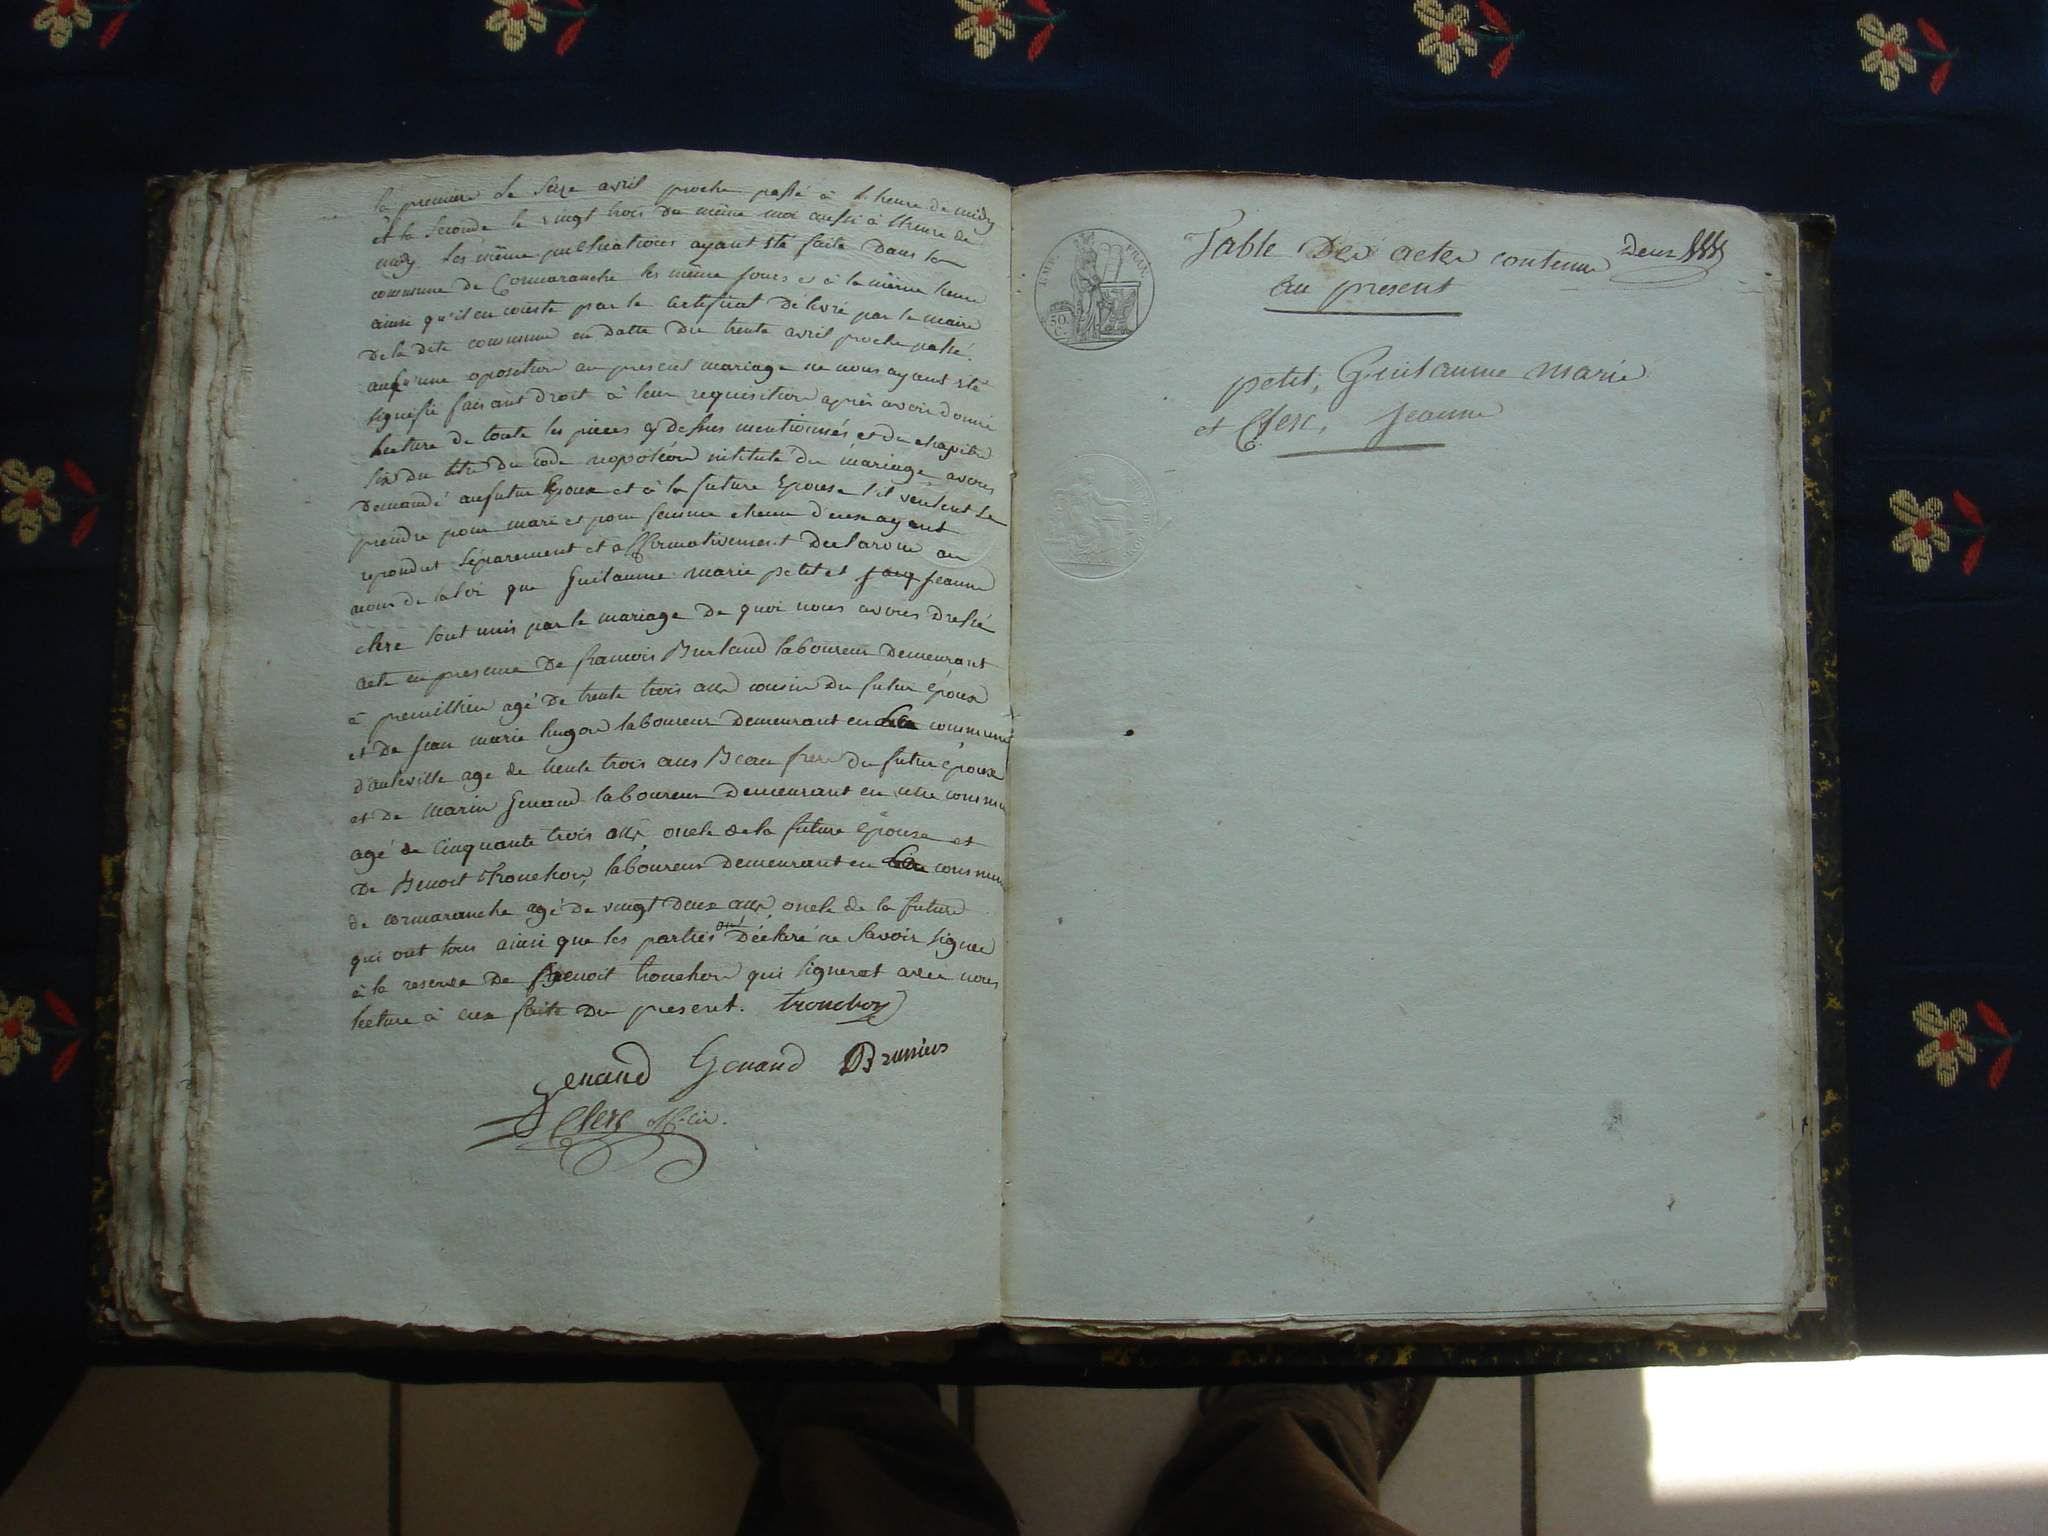 la premiere le seize avril proche passé à l'heure de midy
et la seconde le vingt trois du même moi aussi à l'heure de
midy. Les même publications ayant été faite dans la
commune de Cormaranche les même jours et à la même heure
ainsi qu'il en conste par le certificat délivré par le maire
de la dite commune en datte du trente avril proche passé.
aucune oposition au present mariage ne nous ayant été
signifié faisant droit à leur requisition après avoir donné
lecture de toute les pieces cy dessus mentionnés et du chapitre
six du titre du code napoléon intitulé du mariage avons
demandé au futur Epoux et à la future Epouse s'il veulent se
prendre pour mari et pour femme chacun d'eux ayant
repondut séparement et affirmativement declarons au
nom de la loi que Guilaume marie petit et Jeanne
clerc sont unis par le mariage de quoi nous avons dressé
acte en presence de francois Burland laboureur demeurant
à premillieu agé de trente trois ans cousin du futur époux
et de Jean marie hugon laboureur demeurant en commune
d'auteville age de trente trois ans Beau frere du futur époux
et de marin Genand laboureur demeurant en cette commune
agé de cinquante trois ans oncle de la future épouse et
de Benoit trouchon laboureur demeurant en commune
de cormaranche agé de vingt deux ans oncle de la future
qui ont tous ainsi que les parties ont déclaré ne savoir signer
à la reserve de Benoit trouchon qui signerat avec nous
lecture à eux faite du present. trouchon
Genand Genand Brunier
Clerc
Table des actes contenu Deux
au present
EMP. FRAN.
50
C.
petit, Guilaume marie
et Clerc, Jeanne